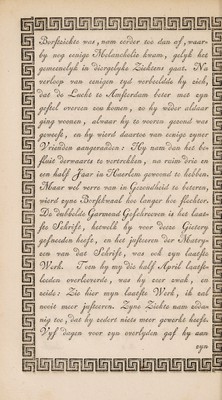 Borstziekte was, nam eerder toe dan af, waar-
by nog eenige Melancholie kwam, gelyk het
gemeenelyk in diergelyke Ziektens gaat. Na
verloop van eenigen tyd verbeeldde hy zich,
dat de Lucht te Amsterdam beter met zyn
gestel overeen zou komen, zo hy weder aldaar
ging woonen, alwaar hy te vooren gezond was
geweest, en hy wierd daartoe van eenige zyner
Vrienden aangeraden: Hy nam dan het be-
sluit derwaarts te vertrekken, na ruim drie en
een half Jaar in Haerlem gewoond te hebben.
Maar wel verre van in Gezondheid te beteren,
wierd zyne Borstkwaal hoe langer hoe slechter.
De dubbelde Garmond Geschreven is het laat-
ste Schrift, hetwelk hy voor deeze Gietery
gesneeden heeft, en het justeeren der Matry-
zen van dat Schrift, was ook zyn laatste
Werk. Toen hy my die half April laatst-
leeden overleverde, was hy zeer zwak, en
zeide: Zie hier myn laatste Werk, ik zal
nooit meer justeeren. Zyne Ziekte nam zodanig
toe, dat hy zedert niets meer gewerkt heeft.
Vyf dagen voor zyn overlyden gaf hy aan
zyn